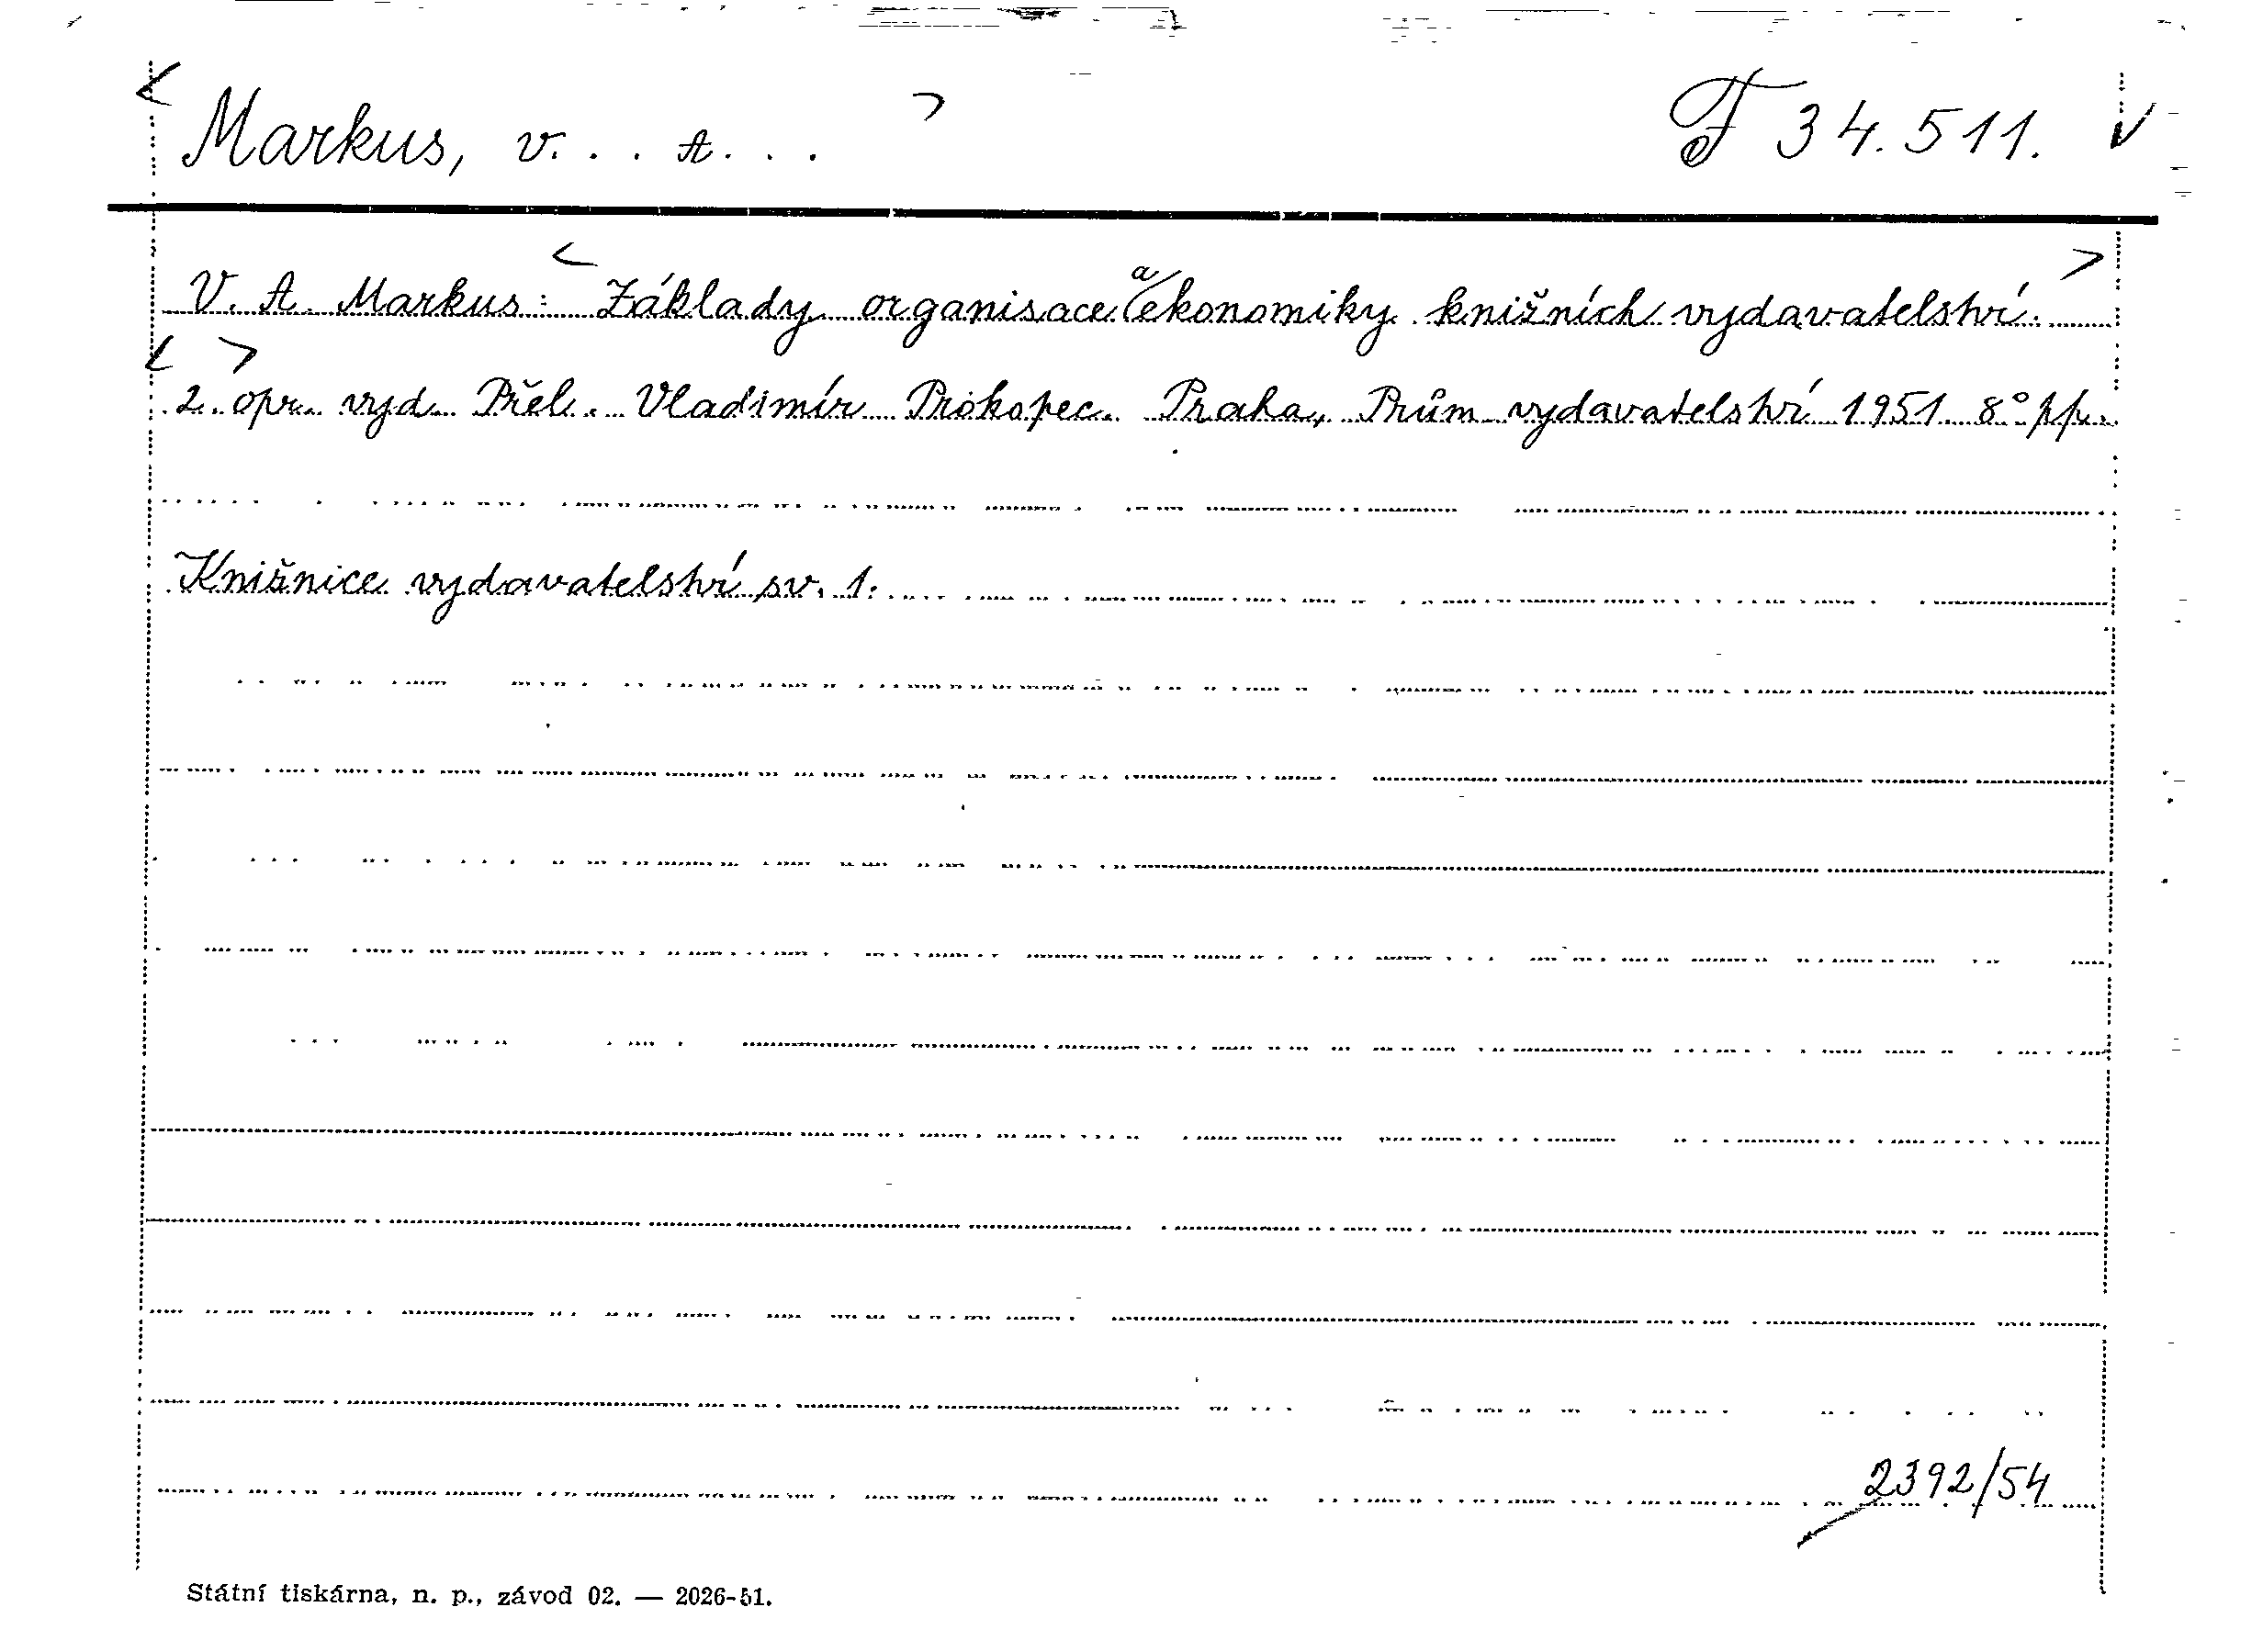 Markus, V... A... F 34.511.
V. A. Markus: Základy organisace a ekonomiky knižních vydavatelství.
2. opr. vyd. Přel. Vladimír Prokopec. Praha, Prům vydavatelství 1951. 8° pp.
Knižnice vydavatelství sv. 1.
2392/54
Státní tiskárna, n. p., závod 02. — 2026-51.